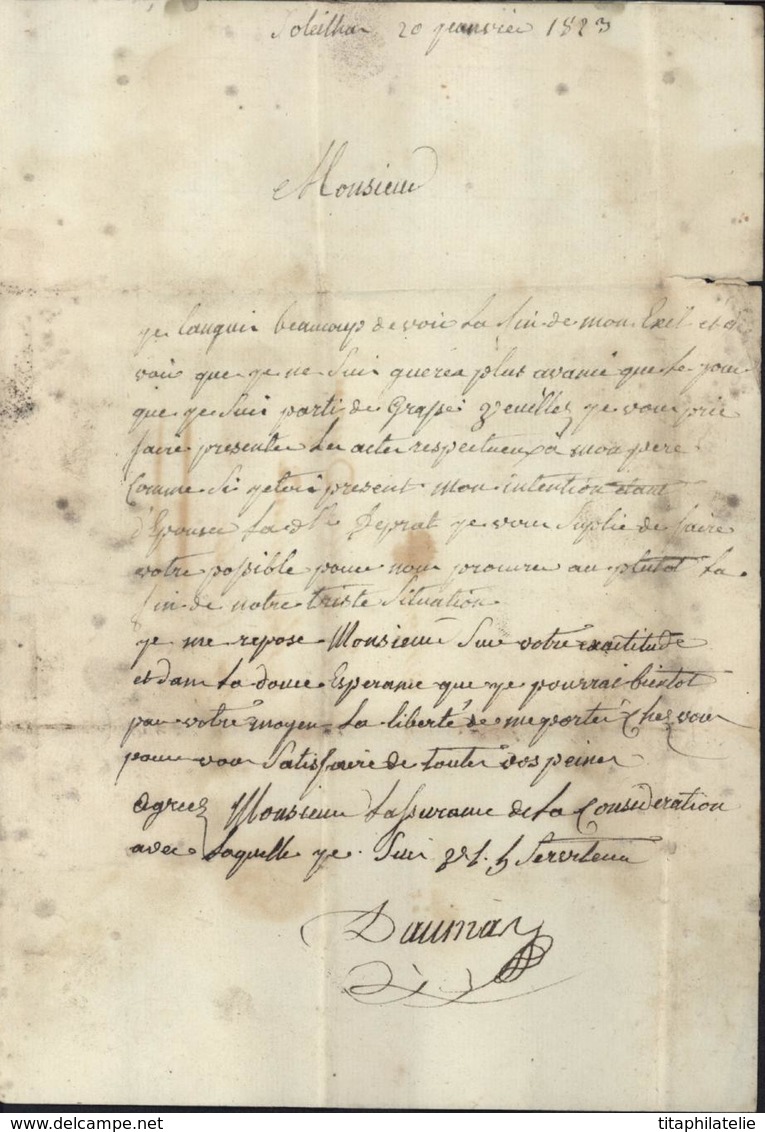 Soleilha 20 janvier 1823
Monsieur
je languis beaucoup de voir la fin de mon Exil et a
voir que je ne suis guerea plus avancé que le jour
que je suis parti de veuillez je vous prie
faire presenter les actes respectueux à mon pere
Comme si jetois present mon intention etant
d'Epouser la dlle Deprat je vous suplie de faire
votre possible pour nous procurer au plutot la
fin de notre triste situation.
je me repose Monsieur sur votre exactitude
et dans la douce Esperance que je pourrai bientot
par votre moyen la liberté de me porter chez vous
pour vous satisfaire de toutes vos peines
agreez Monsieur l'assurance de la Consideration
avec laquelle je suis v. t. h. serviteur
Daumas
titaphilatelie